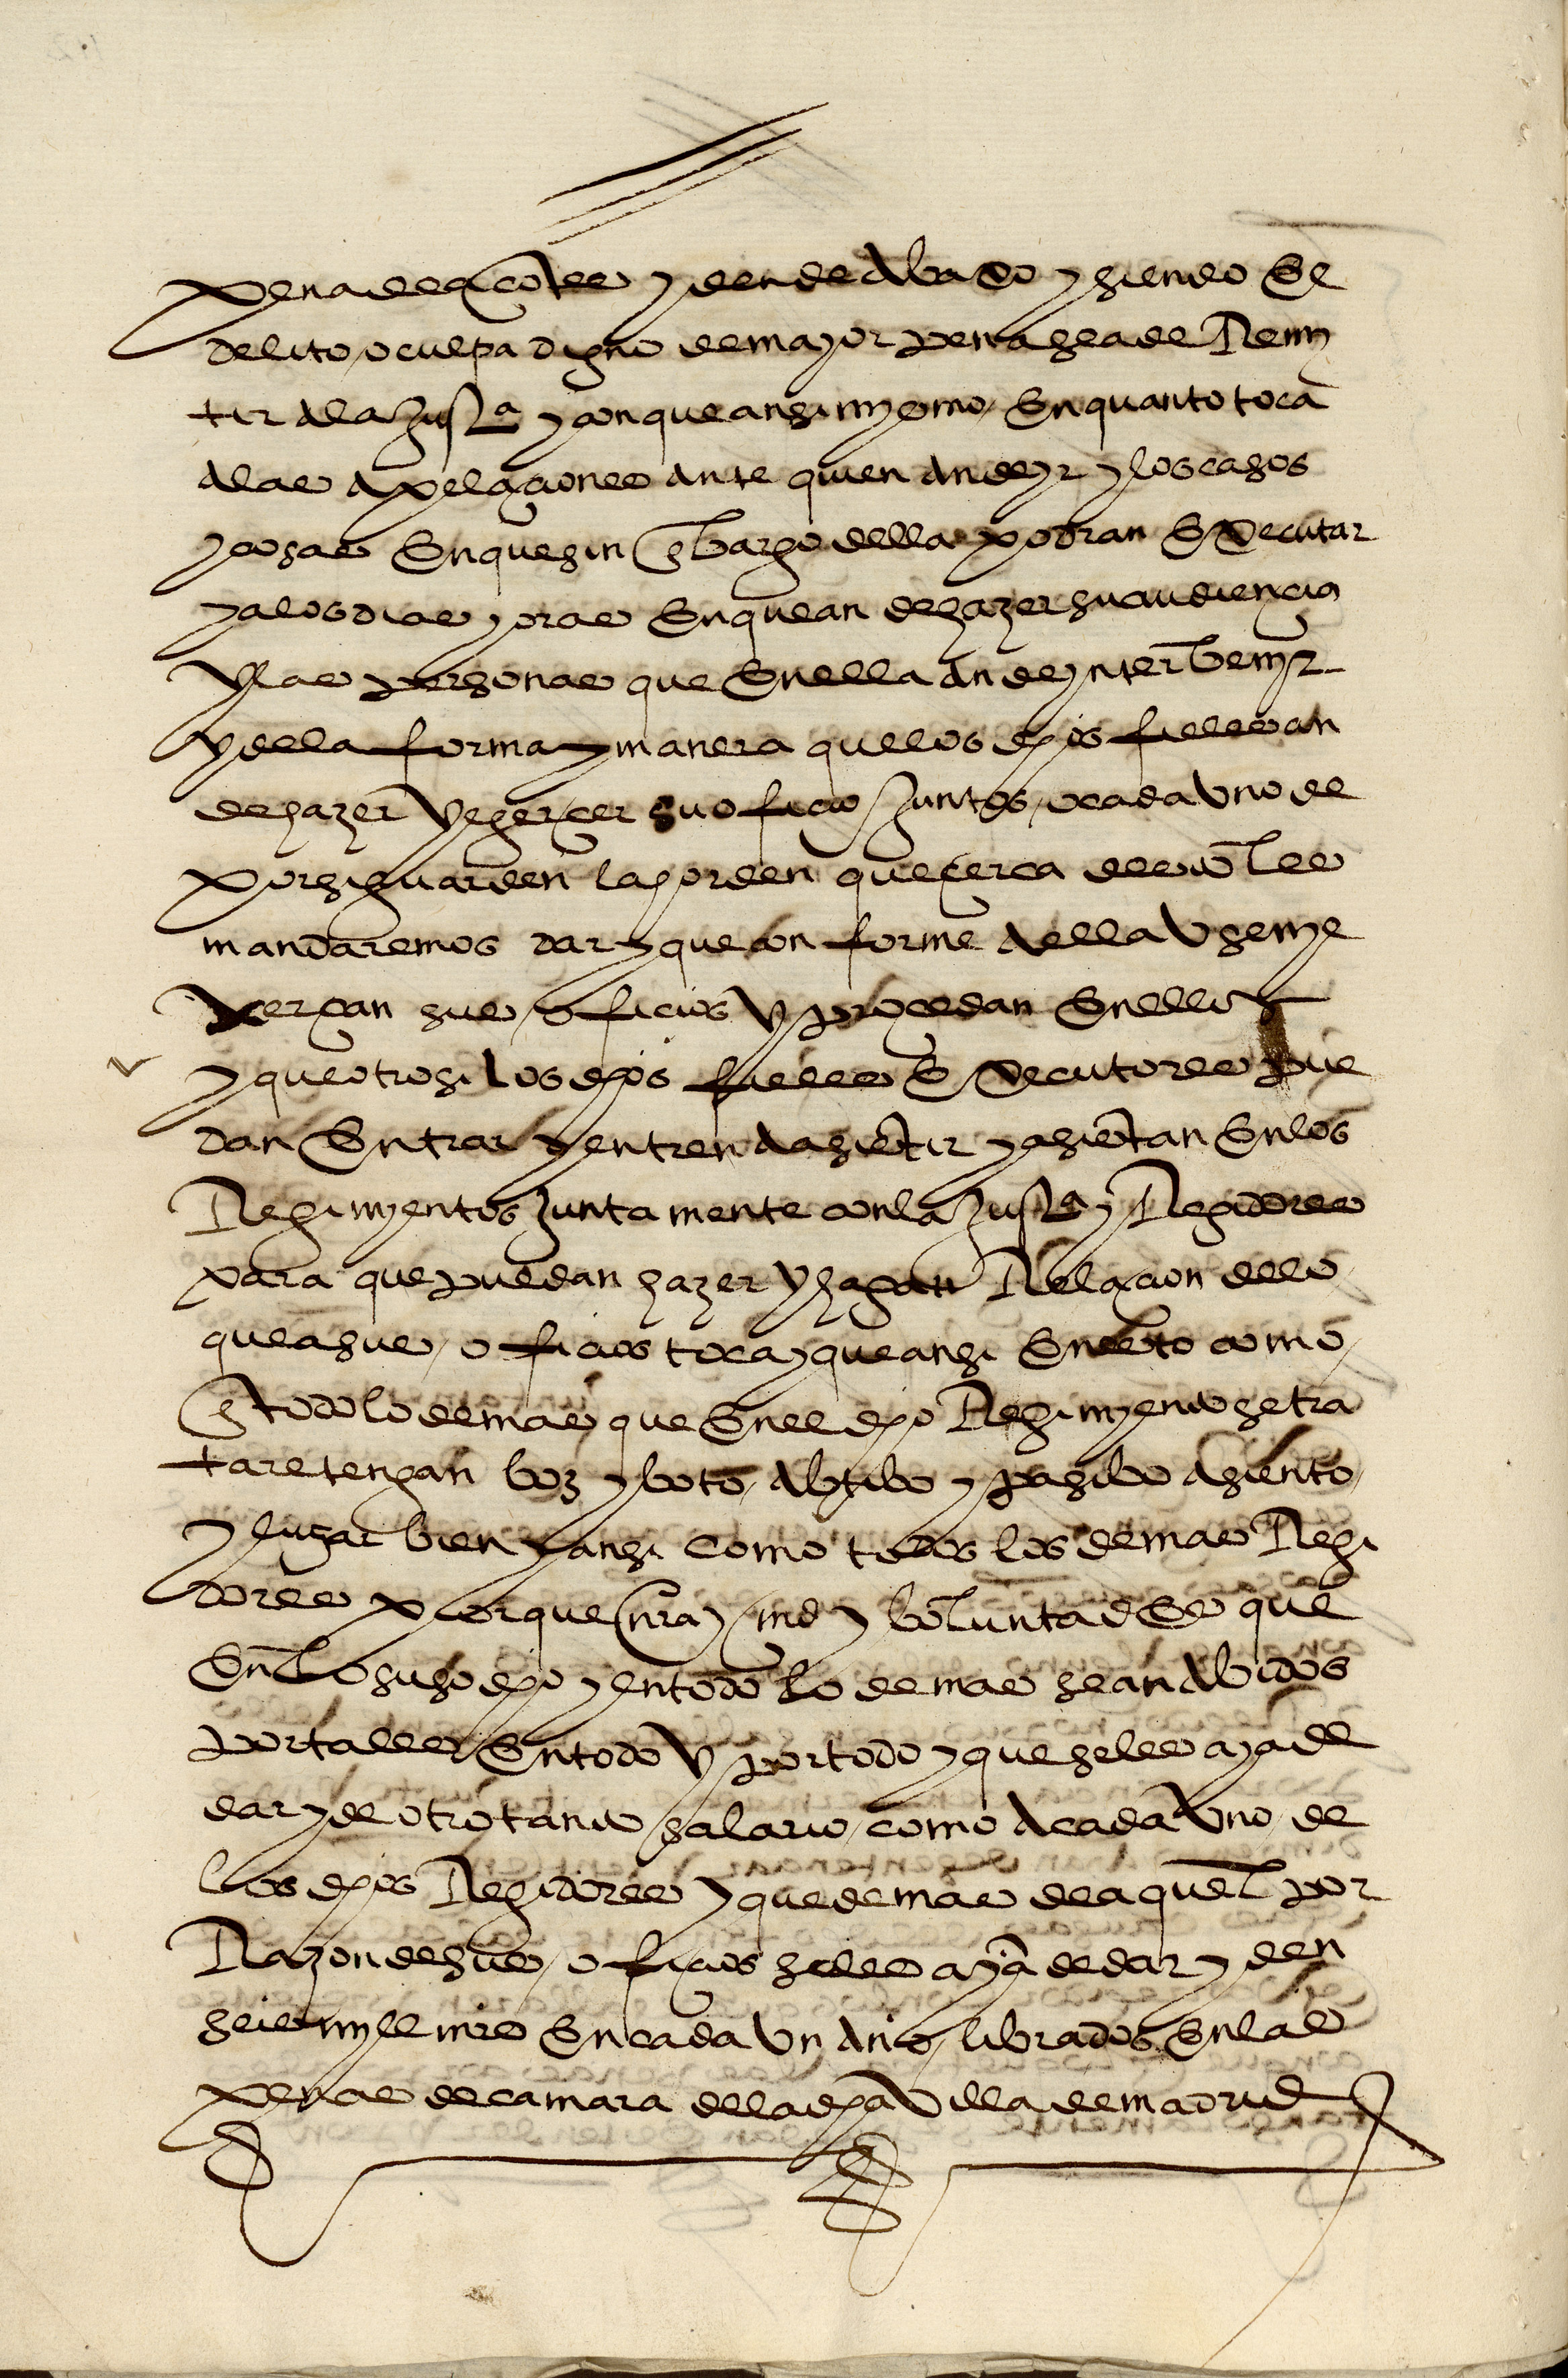 pena de açotes y dende abaxo y siendo el
delito o culpa digno de mayor pena se a de Remy
tir a la Just.ª y con que ansi mysmo en quanto toca
a las apelaçiones ante quien an de yr y los casos
y cosas en que sin enbargo della podran executar
y a los dias y oras en que an de hazer su audiençia
y las personas que en ella an de yntervenyr
y de la forma y manera que los dhos fieles an
de hazer y exerçer su ofiçio juntos o cada uno de
por si guarden la horden que çerca dello les
mandaremos dar y que conforme a ella usen y e
xerçan sus ofiçios y proçedan en ellos
y que otrosi los dhos fieles executores pue
dan entrar y entren a asistir y asistan en los
Regimyentos juntamente con la Just.ª y Regidores
para que puedan hazer y hagan Relaçion de lo
que a sus ofiçios toca y que ansi en esto como
en todo lo demas que en el dho Regimyento se tra
tare tengan boz y boto abtibo y pasibo asiento
y lugar bien y ansi como todos los demas Regi
dores porque nra md y boluntad es que
en lo suso dho y en todo lo demas sean abidos
por tales en todo y por todo y que se les aya de
dar y de otro tanto salario como a cada uno de
los dhos Regidores y que demas de aquel por
Razon de sus ofiçios se les aya de dar y den
seis myll mrs en cada un año librados en las
penas de camara de la dha villa de madrid